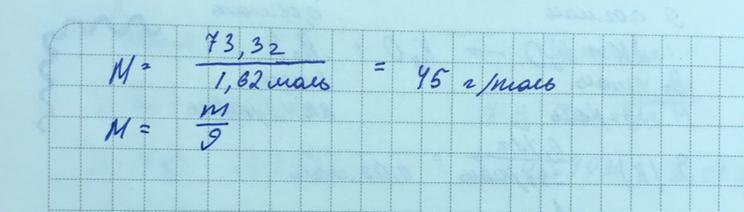 M = 73,3г / 1,62 моль = 45 г/моль
M = m / υ